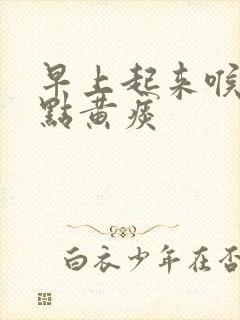 早上起来喉
點黄痰
白衣少年在否